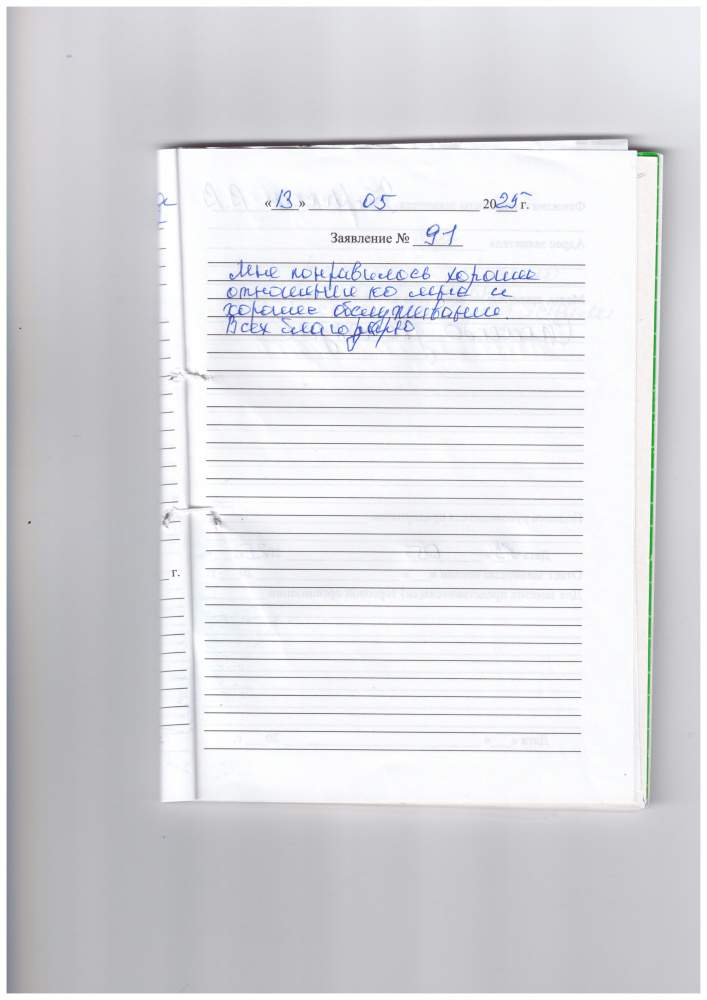 «13» 05 2025 г.
Заявление № 91
Мне понравилось хорошее
отношение ко мне и
хорошее обслуживание.
Всех благодарю
г.